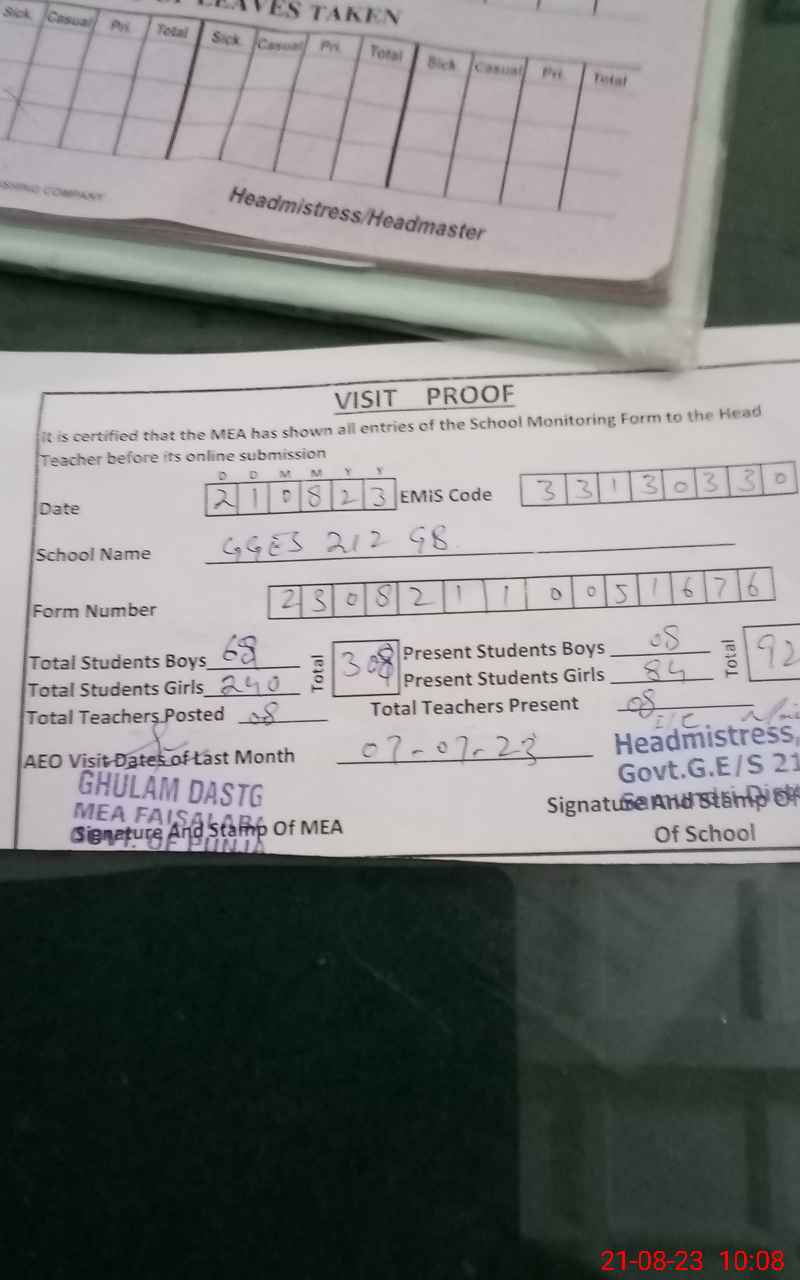 LEAVES TAKEN
Sick Casual Pri. Total Sick Casual Pri. Total Sick Casual Pri. Total
COMPANY
Headmistress/Headmaster
VISIT PROOF
It is certified that the MEA has shown all entries of the School Monitoring Form to the Head
Teacher before its online submission
D D M M Y Y
Date 2 1 0 8 2 3 EMIS Code 3 3 1 3 0 3 3 0
School Name GGES 212 GB
Form Number 2 3 0 8 2 1 1 0 0 5 1 6 7 6
Total Students Boys 68 Total 308 Present Students Boys 08 Total 92
Total Students Girls 240 Present Students Girls 84
Total Teachers Posted 08 Total Teachers Present 08
AEO Visit Dates of Last Month 07-07-23
I/C
Headmistress,
Govt.G.E/S 21
GHULAM DASTG
MEA FAISALABA
GOVT. OF PUNJA
Signature And Stamp Of MEA
Signature And Stamp Of
Of School
21-08-23 10:08